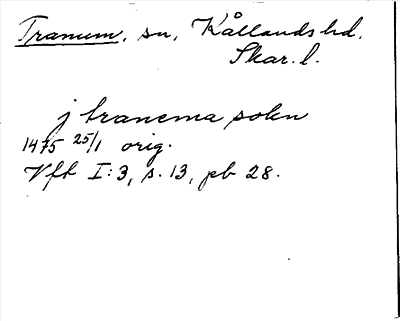 Tranum, sn, Kållands hd,
Skar. l.
j tranema sokn
1475 25/1 orig.
Vft I:3, s. 13, pb 28.